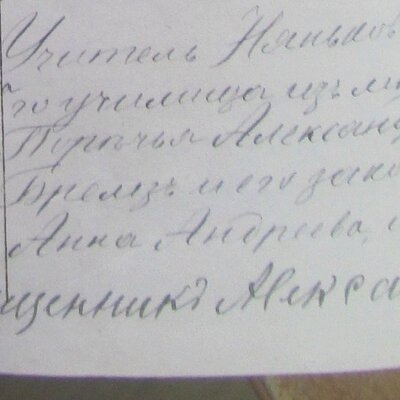 Учитель Няньков
го училища изъ м
Порѣчья Александ
Бремзъ и его зако
Анна Андреева, и
щенникъ Алекса